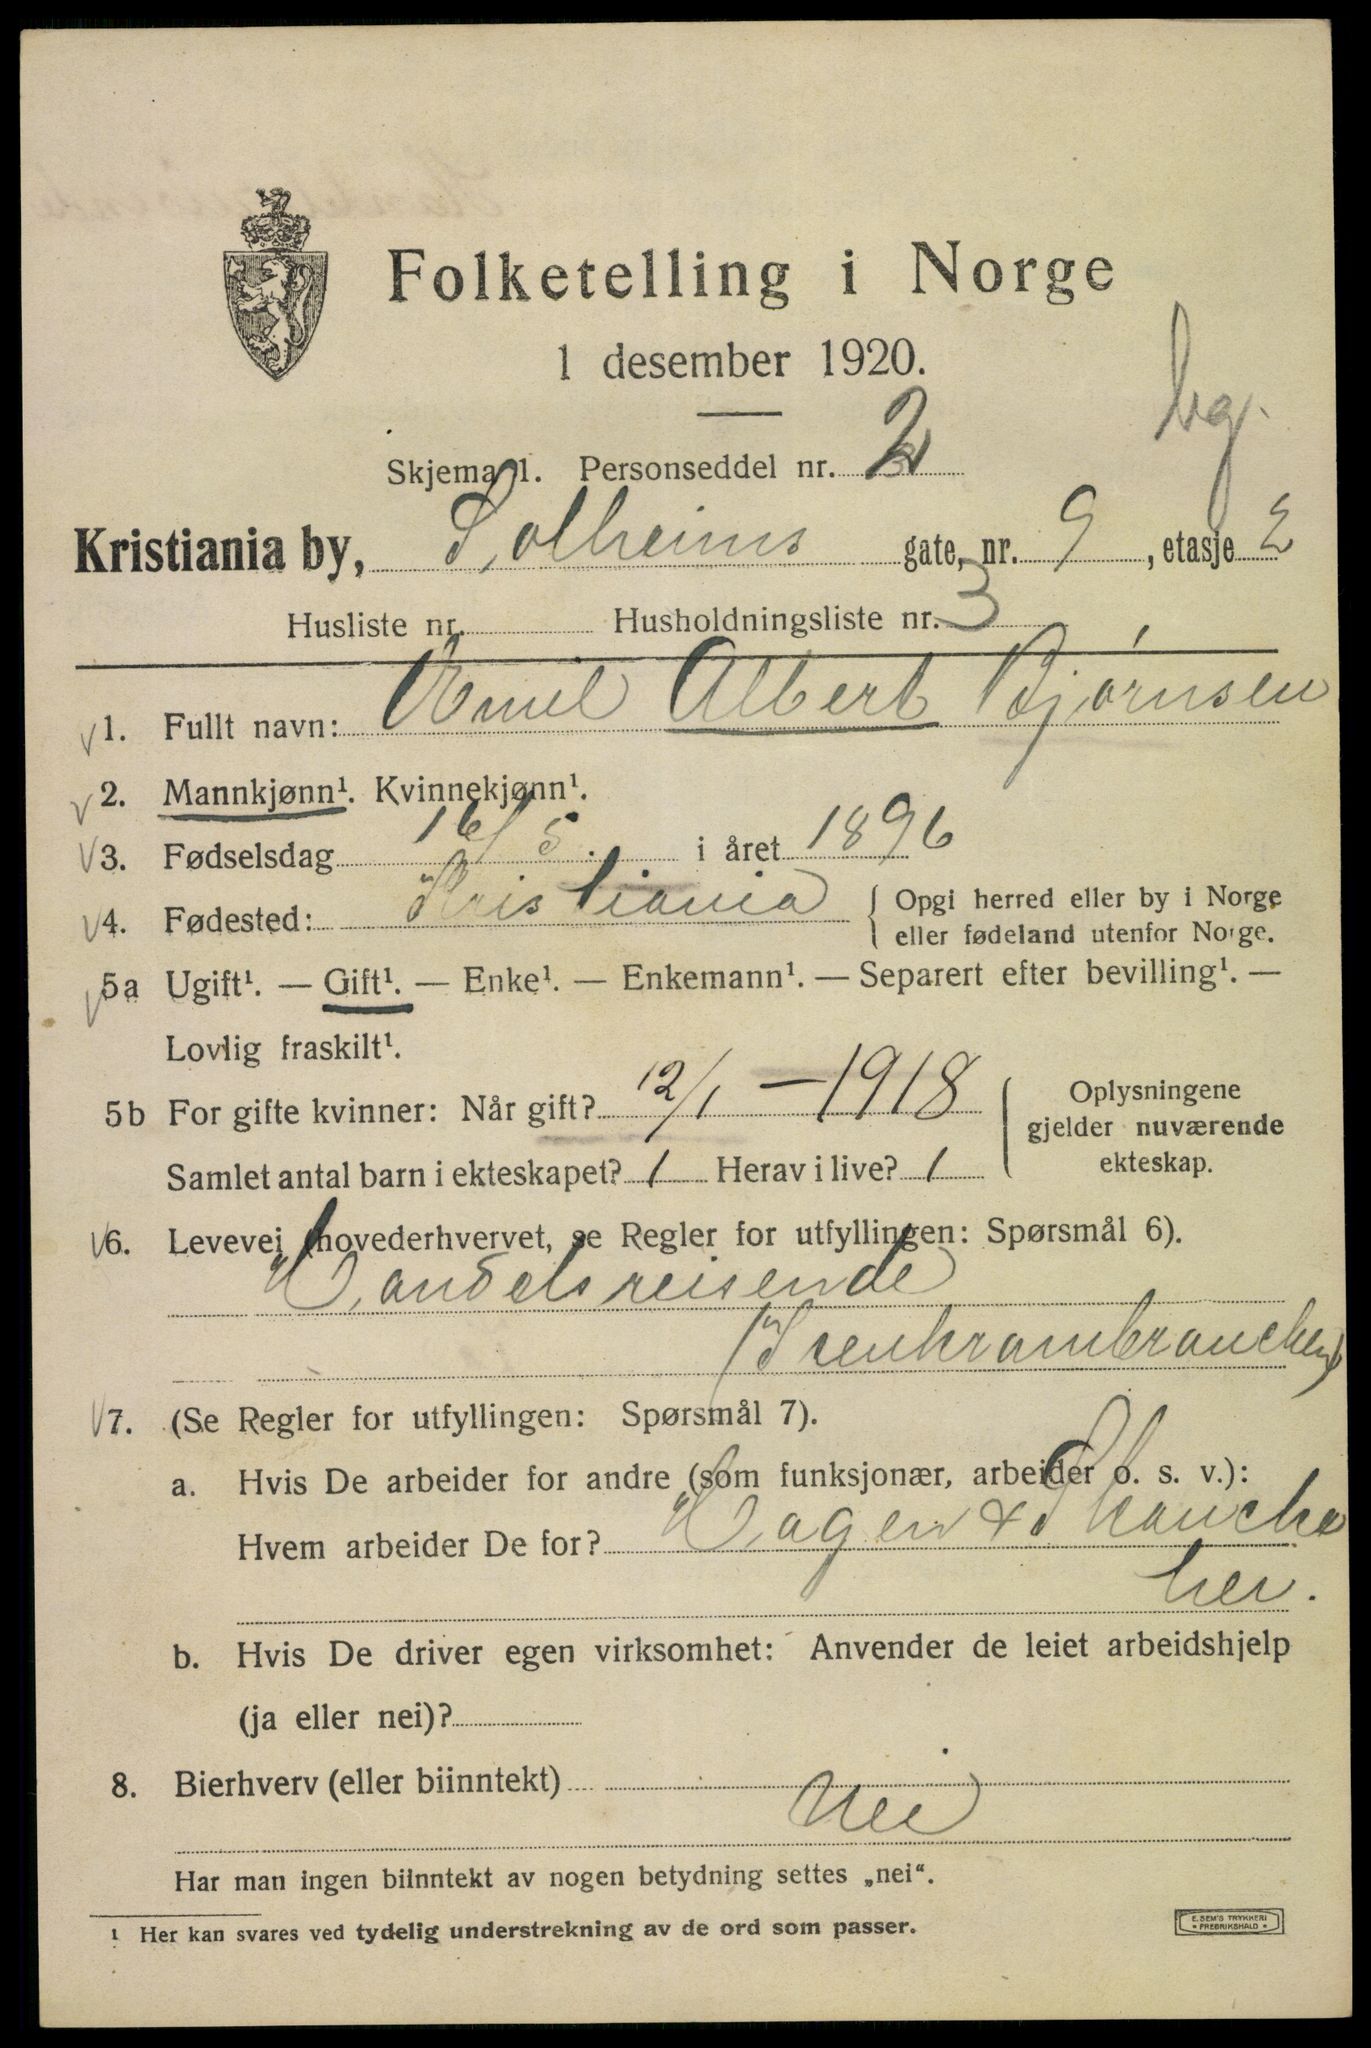 Folketelling i Norge
1 desember 1920.
bg.
Skjema 1. Personseddel nr. 2
Kristiania by, Solheims gate, nr. 9, etasje 2
Husliste nr. Husholdningsliste nr. 3
1. Fullt navn: Emil Albert Bjørnsen
2. Mannkjønn¹. Kvinnekjønn¹.
3. Fødselsdag 16/5. i året 1896
4. Fødested: Kristiania { Opgi herred eller by i Norge
eller fødeland utenfor Norge.
5a Ugift¹. — Gift¹. — Enke¹. — Enkemann¹. — Separert efter bevilling¹. —
Lovlig fraskilt¹.
5b For gifte kvinner: Når gift? 12/1 — 1918 { Oplysningene
gjelder nuværende
ekteskap.
Samlet antal barn i ekteskapet? 1 Herav i live? 1
6. Levevei (hovederhvervet, se Regler for utfyllingen: Spørsmål 6).
Handelsreisende
(Isenkrambranchen)
7. (Se Regler for utfyllingen: Spørsmål 7).
a. Hvis De arbeider for andre (som funksjonær, arbeider o. s. v.):
Hvem arbeider De for? Hagen &
her.
b. Hvis De driver egen virksomhet: Anvender de leiet arbeidshjelp
(ja eller nei)?
8. Bierhverv (eller biinntekt)
Nei
Har man ingen biinntekt av nogen betydning settes „nei“.
¹ Her kan svares ved tydelig understrekning av de ord som passer.
E. SEM'S TRYKKERI
* FREDRIKSHALD *